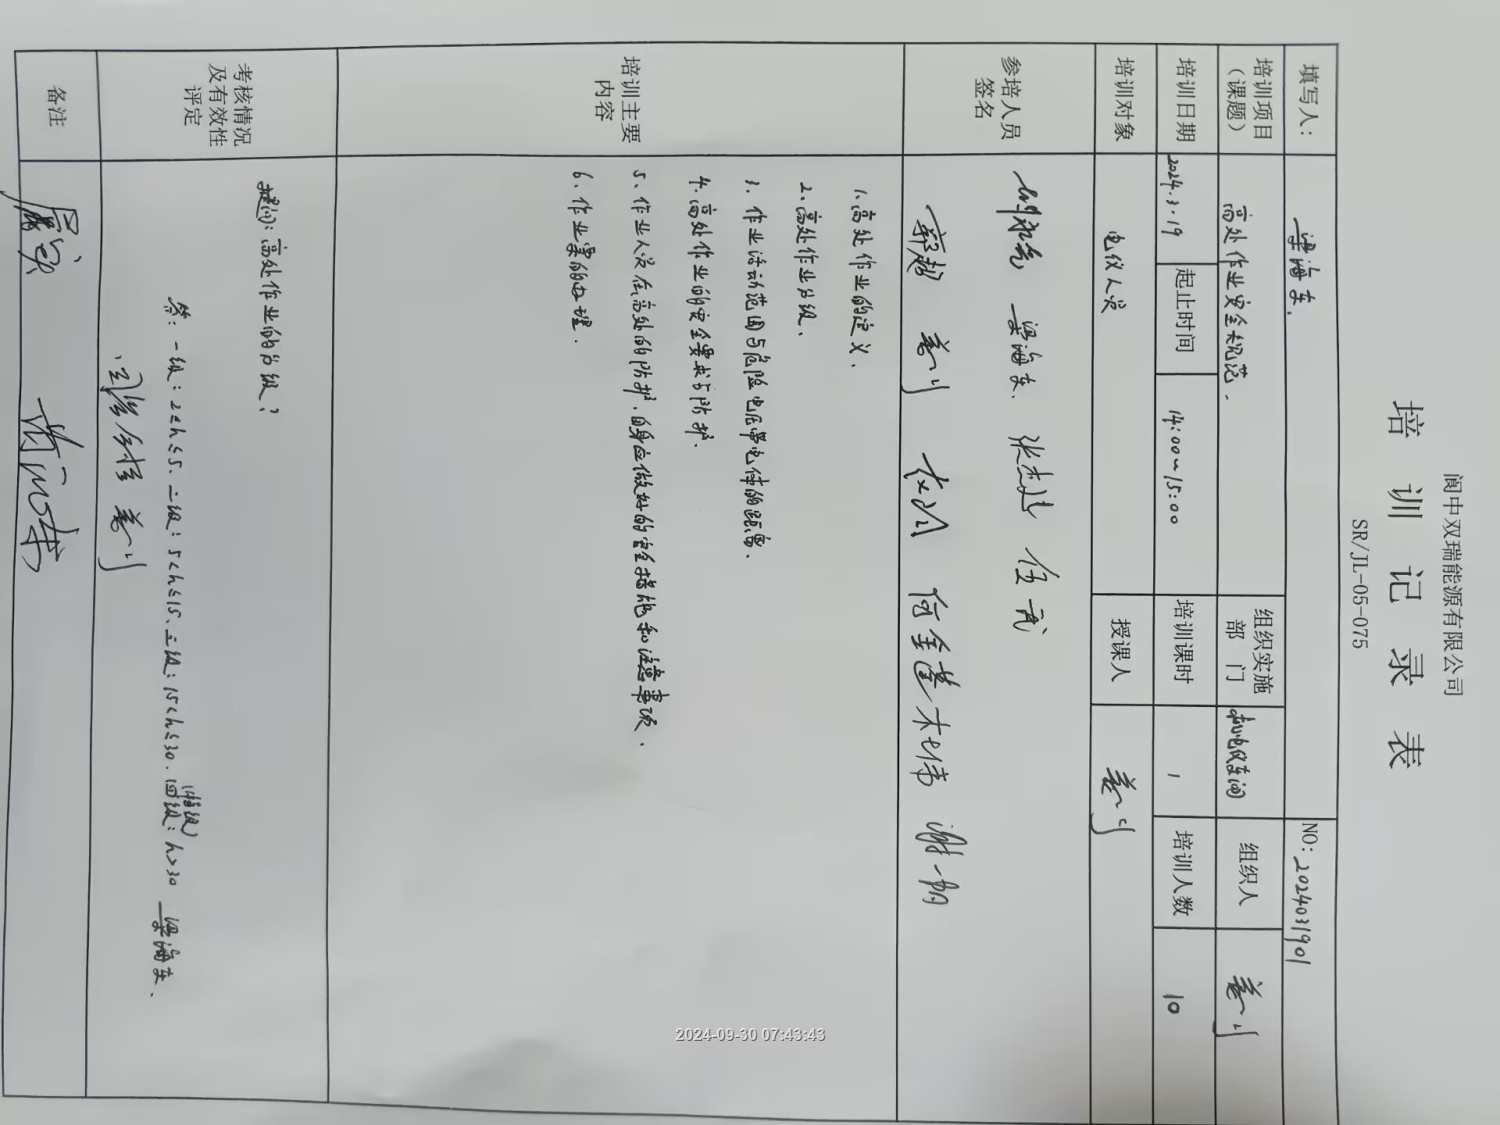 阆中双瑞能源有限公司
培训记录表
SR/JL-05-075
填写人: 梁海东. NO: 2024031901
培训项目（课题） 高处作业安全规范. 组织实施部门 电仪车间 组织人
培训日期 2024.3.19 起止时间 14:00~15:00 培训课时 1 培训人数 10
培训对象 电仪人员 授课人
参培人员签名
梁海东. 张杰 任武
郭超 何全 谢
培训主要内容
1、高处作业的定义.
2、高处作业分级.
3、作业活动范围与危险电压带电体的距离.
4、高处作业的安全要求与防护.
5、作业人员在高处的防护.自身应做好的安全措施和注意事项.
6、作业票的办理.
考核情况及有效性评定
提问: 高处作业的分级?
答: 一级: 2≤h≤5. 二级: 5<h≤15. 三级: 15<h≤30. 四级: h>30 梁海东.
备注
2024-09-30 07:43:43